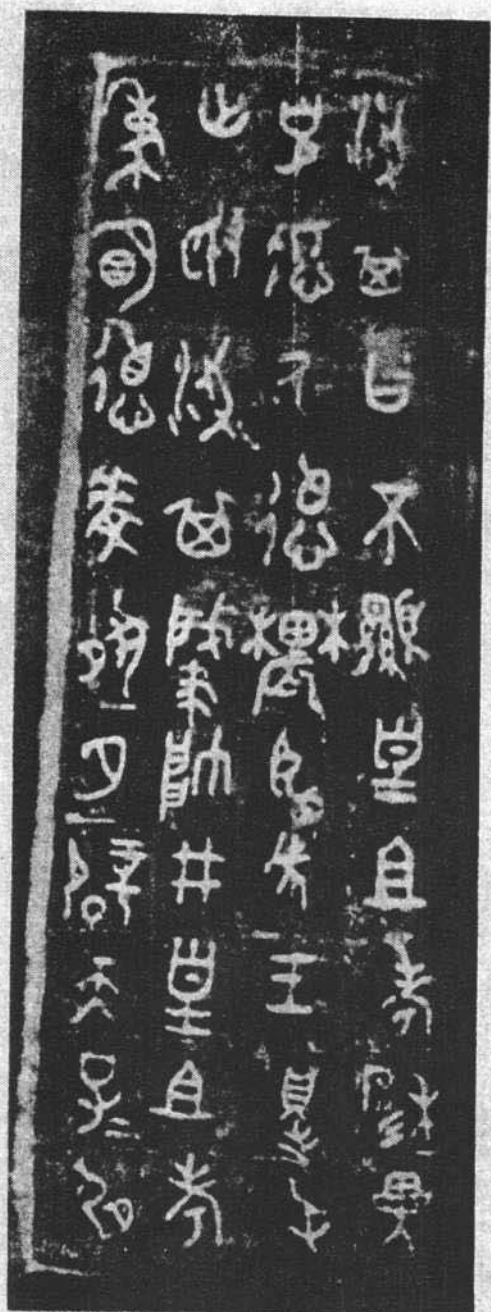 汈其曰不顯皇且考穆=異=
克悊氒德農臣先王得屯
亡敃汈其肇帥井皇且考
秉明德虔夙夕辟天子